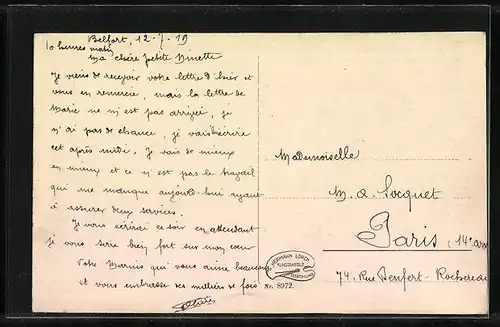 Belfort, 12-7-19
10 heures matin
Ma chère petite Ninette
Je viens de recevoir votre lettre d'hier et
vous en remercie, mais la lettre de
Marie ne m'est pas arrivée, je
n'ai pas de chance, je vais écrire
cet après midi. Je vais de mieux
en mieux et ce n'est pas le travail
qui me manque aujourd'hui ayant
à assurer deux services.
Je vous écrirai ce soir en attendant
je vous serre bien fort sur mon cœur
Votre qui vous aime beaucoup
et vous embrasse des milliers de fois
Mademoiselle
M. a. Socquet
Paris, (14e arr
74, Rue Denfert-Rochereau
HERMANN LORCH
KUNSTANSTALT
DORTMUND
Nr. 8972.